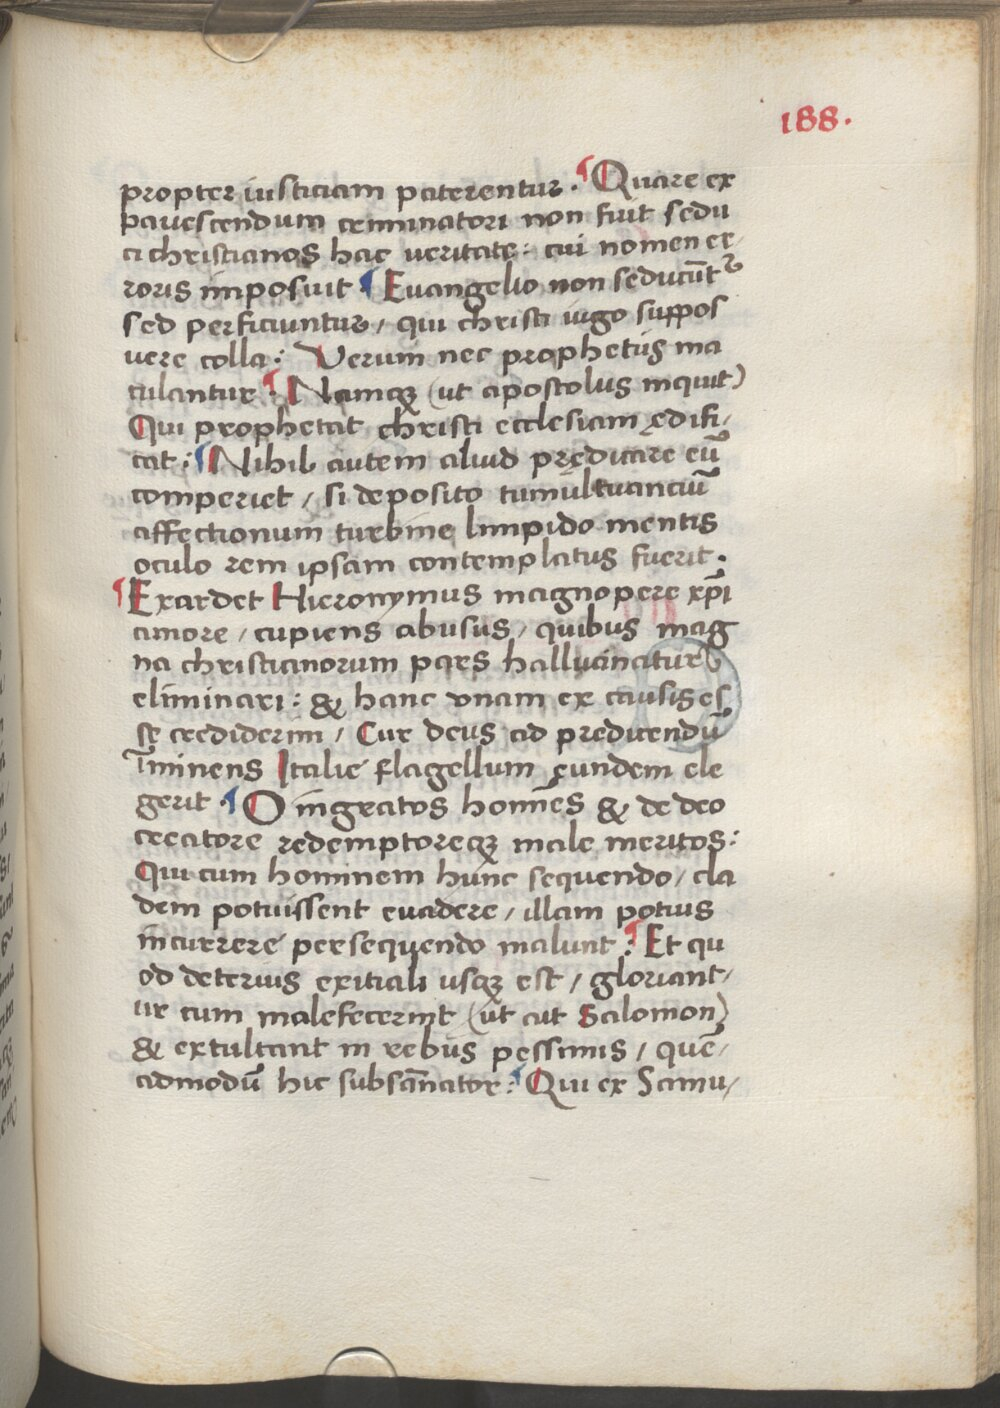 188.
propter iusticiam paterentur. ¶ Quare ex
pauescendum criminatori non fuit sedu
ci christianos hac veritate: cui nomen er-
roris imposuit ¶ Euangelio non seducūtꝛ
sed perficiuntur / qui christi iugo suppos
uere colla: Verum nec prophetijs ma
culantur: ¶ Namqꝫ (ut apostolus inquit)
Qui prophetat christi ecclesiam ędifi/
cat: ¶ Nihil autem aliud prędicare eū
comperiet / si deposito tumultuanciū
affectionum turbine limpido mentis
oculo rem ipsam contemplatus fuerit.
¶ Exardet Hieronymus magnopere xp̄i
amore / cupiens abusus / quibus mag
na christianorum pars hallucinatur
eliminari: & hanc vnam ex causis es
se crediderim / Cur deus ad predicendū
īminens Italię flagellum eundem ele
gerit. ¶ O ingratos homīes & de deo
creatore redemptoreqꝫ male meritos:
Qui cum hominem hunc sequendo / cla
dem potuissent euadere / illam potius
incurrere persequendo malunt: ¶ Et qu
od deterius exitiali usqꝫ est / gloriant/
ur cum malefecerint (ut ait Salomon)
& exultant in rebus pessimis / quē/
admodū hic subsānator: ¶ Qui ex Samu/